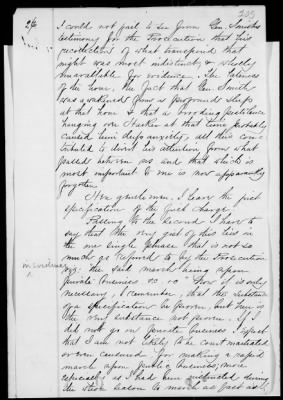 I could not fail to see from Gen. Smith's
testimony for the Prosecution that his
recollection of what transpired that
night was most indistinct, & wholly
unavailable for evidence. The lateness
of the hour, the fact that Gen. Smith
was awakened from a profound sleep
at that hour & that a brooding pestilence
hanging on at that time probably
caused him deep anxiety, all this con-
tributed to divert his attention from what
passed between us and that which is
most important to me is now apparently
forgotten.
Here gentlemen, I leave the first
specification of the first charge.
Passing to the second I have to
say that the very gist of this lies in
the one single phrase that is not so
much as referred to by the Prosecution
viz: the said march being upon
private business. Now it is only
necessary, I remember, that the substance
of a specification be proven, but here is
the very substance not proven. If I
did not go on private business I submit
that I am not likely to be court martialed
or even censured for making a rapid
march upon public business; more
especially as I had been instructed during
the season to march as fast as I